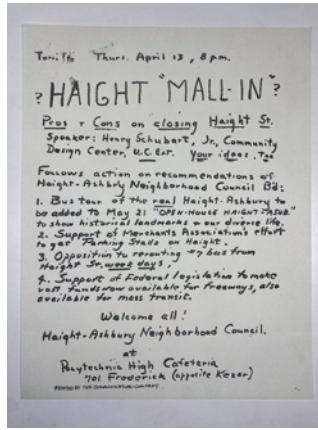 Tonite Thurs. April 13, 8 p.m.
? HAIGHT "MALL-IN" ?
Pros & Cons on closing Haight St.
Speaker: Henry Schubart, Jr., Community
Design Center, U.C. Ext. Your ideas, Too
Follows action on recommendations of
Haight-Ashbury Neighborhood Council Bd:
1. Bus tour of the real Haight-Ashbury to
be added to May 21 "OPEN-HOUSE HAIGHT-ASHB."
to show historical landmarks & our diverse life.
2. Support of Merchants Association's effort
to get Parking Stalls on Haight.
3. Opposition to rerouting #7 bus from
Haight St. week days.
4. Support of Federal legislation to make
vast funds now available for freeways, also
available for mass transit.
Welcome all!
Haight-Ashbury Neighborhood Council.
at
Polytechnic High Cafeteria
701 Frederick (opposite Kezar)
PRINTED BY THE COMMUNICATION COMPANY